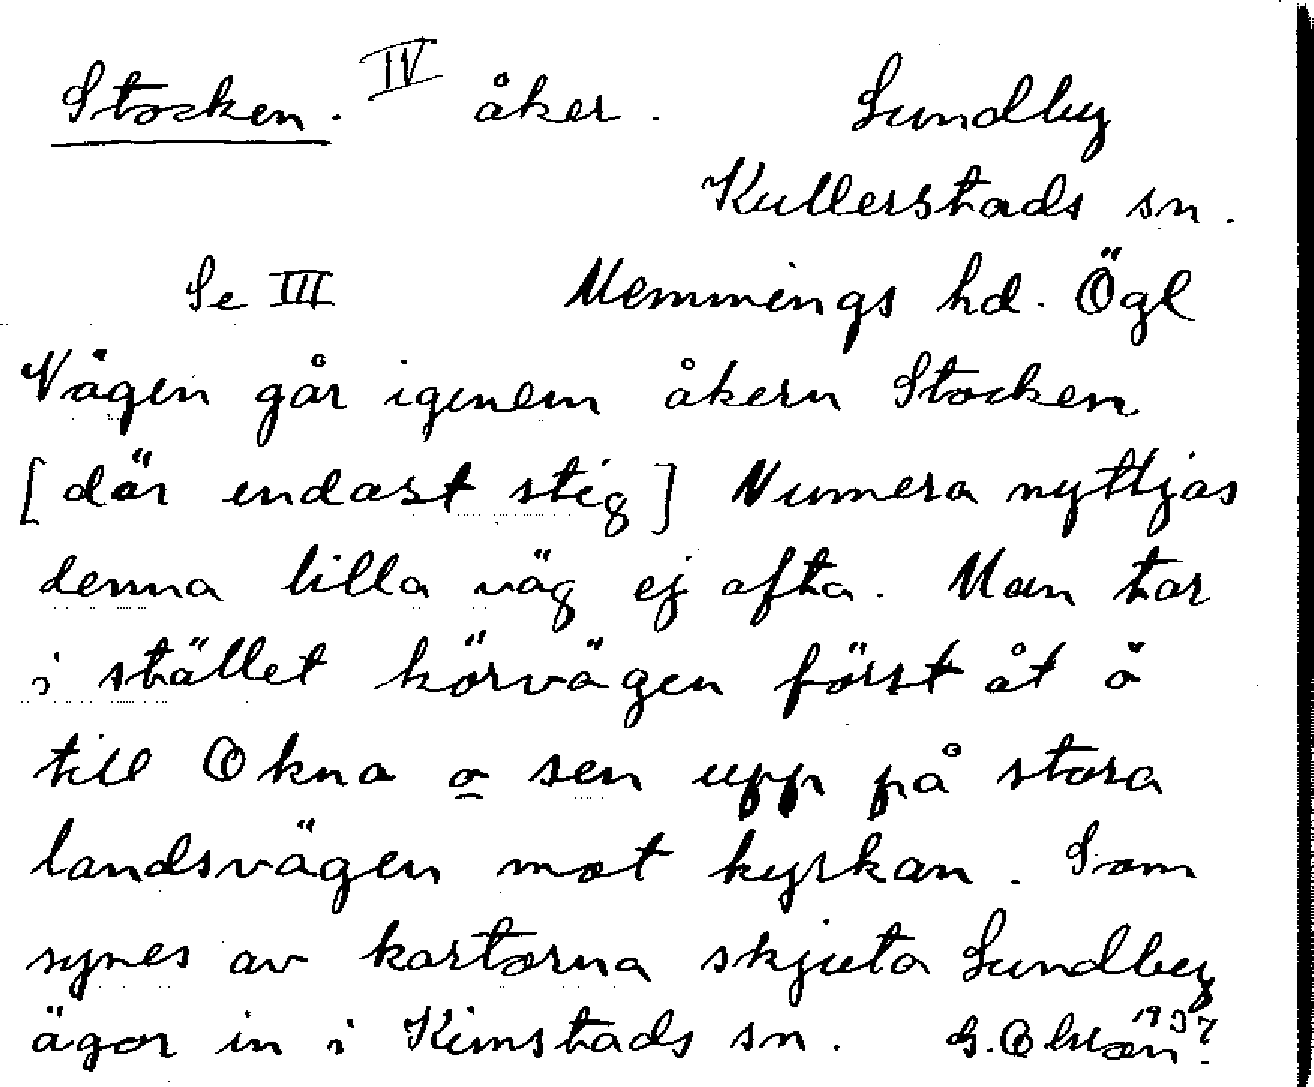 Stocken. IV åker. Sundby
Kullerstads sn.
Se III Memmings hd. Ögl
Vägen går igenem åkern Stocken
[där endast stig] Numera nyttjas
denna lilla väg ej ofta. Man tar
i stället körvägen först åt ö
till Okna o sen upp på stora
landsvägen mot kyrkan. Som
synes av kartorna skjuta Sundby
ägor in i Kimstads sn. G. Olsson 1937.